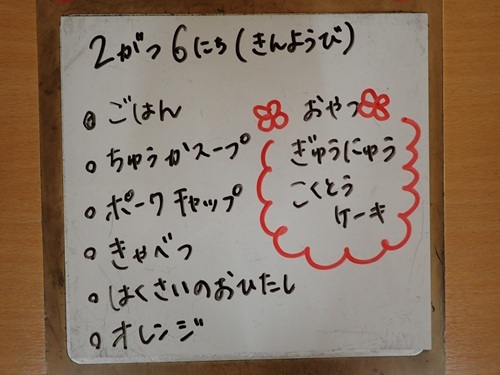 2がつ6にち(きんようび)
ごはん
ちゅうかスープ
ポークチャップ
きゃべつ
はくさいのおひたし
オレンジ
おやつ
ぎゅうにゅう
こくとう
ケーキ